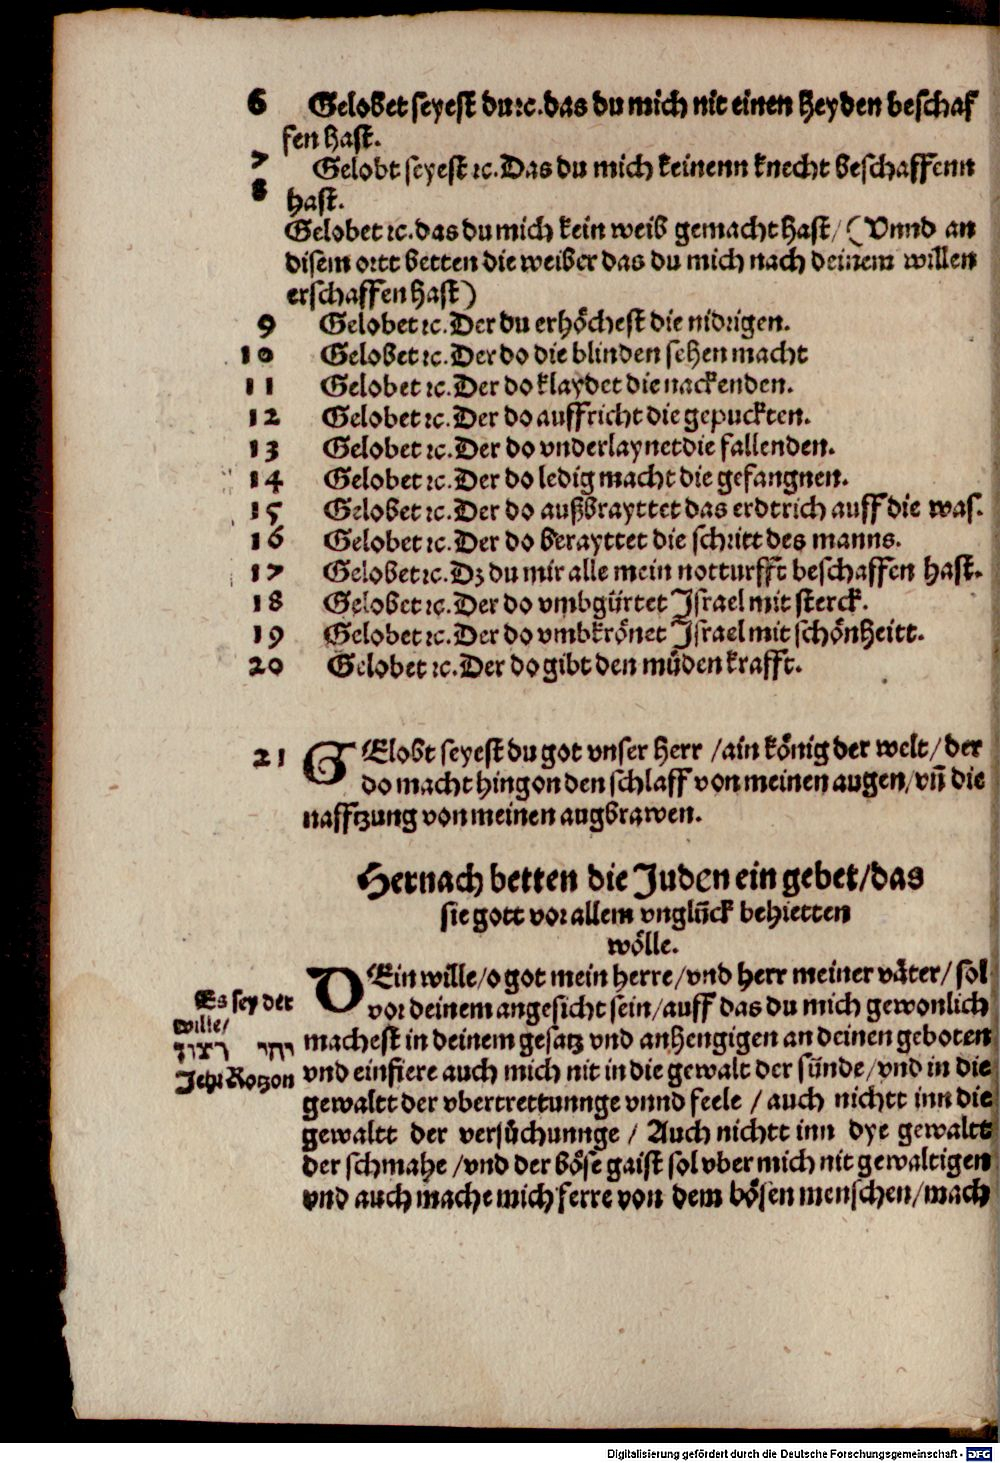 6 Gelobet seyest du ⁊c. das du mich nit einen Heyden beschaf
fen hast.
7 Gelobt seyest ⁊c. Das du mich keinenn knecht beschaffenn
8 hast.
Gelobet ⁊c. das du mich kein weib gemacht hast/ (Vnnd an
disem ortt betten die weiber das du mich nach deinem willen
erschaffen hast)
9 Gelobet ⁊c. Der du erhöchest die nidrigen.
10 Gelobet ⁊c. Der do die blinden sehen macht
11 Gelobet ⁊c. Der do klaydet die nackenden.
12 Gelobet ⁊c. Der do auffricht die gepuckten.
13 Gelobet ⁊c. Der do vnderlaynet die fallenden.
14 Gelobet ⁊c. Der do ledig macht die gefangnen.
15 Gelobet ⁊c. Der do außbrayttet das erdtrich auff die was.
16 Gelobet ⁊c. Der do berayttet die schritt des manns.
17 Gelobet ⁊c. Dz du mir alle mein notturfft beschaffen hast.
18 Gelobet ⁊c. Der do vmbgürtet Israel mit sterck.
19 Gelobet ⁊c. Der do vmbkrönet Israel mit schönheitt.
20 Gelobet ⁊c. Der do gibt den müden krafft.
21 GElobt seyest du got vnser Herr /ain könig der welt/ der
do macht hingon den schlaff von meinen augen/ vn̄ die
nafftzung von meinen augbrawen.
Hernach betten die Juden ein gebet/das
sie gott vor allem vnglück behietten
wölle.
DEin wille/o got mein herre/vnd herr meiner väter/ sol
vor deinem angesicht sein/auff das du mich gewonlich
machest in deinem gesatz vnd anhengigen an deinen geboten
vnd einfiere auch mich nit in die gewalt der sünde/vnd in die
gewaltt der vbertrettunnge vnnd feele / auch nichtt inn die
gewaltt der versůchunnge / Auch nichtt inn dye gewaltt
der schmahe /vnd der böse gaist sol vber mich nit gewaltigen
vnd auch mache mich ferre von dem bösen menschen/mach
Es sey der
wille/
יהי רצון
Jehi Rotzon
Digitalisierung gefördert durch die Deutsche Forschungsgemeinschaft - DFG